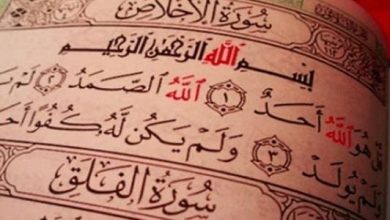 سُورَةُ الإِخْلَاصِ
بِسْمِ اللَّهِ الرَّحْمَٰنِ الرَّحِيمِ
هُوَ اللَّهُ أَحَدٌ ١ اللَّهُ الصَّمَدُ ٢ لَمْ
يُولَدْ ٣ وَلَمْ يَكُن لَّهُ كُفُوًا
سُورَةُ الْفَلَقِ